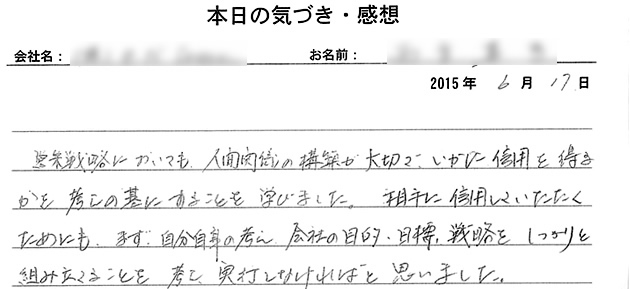 本日の気づき・感想
会社名：
お名前：
2015年 6月 17日
営業戦略においても、人間関係の構築が大切で、いかに信用を得る
かを考えの基にすることを学びました。 相手に信用していただく
ためにも、まず、自分自身の考え、会社の目的・目標、戦略をしっかりと
組み立てることを考え、実行しなければと思いました。